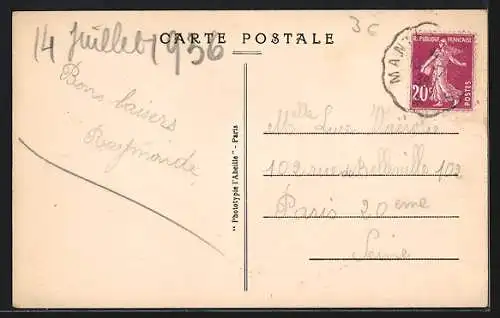 3€
CARTE POSTALE
14 Juillet 1936
Bons baisers
Raymonde
"Phototypie l'Abeille" - Paris
MAN
RÉPUBLIQUE FRANÇAISE
20c
POSTES
Melle Luce
102 rue de Belleville 102
Paris 20eme
Seine